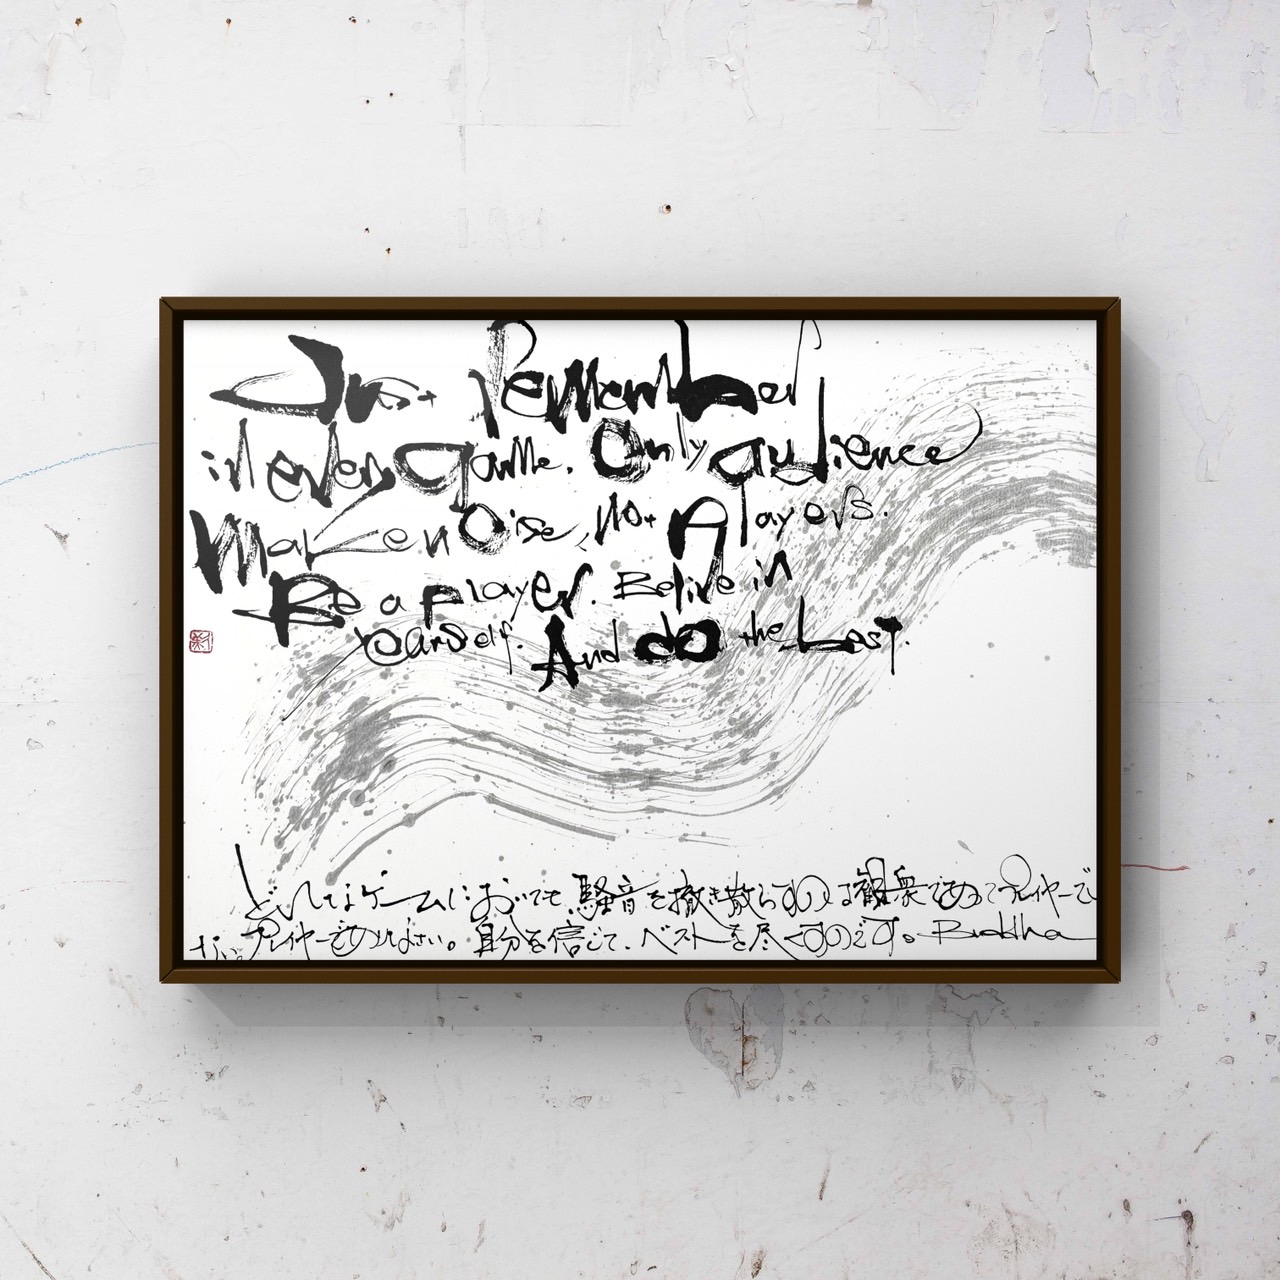 Just Remember
in every game. Only audience
Make noise, not players.
Be a player. Belive in
yourself. And do the best.
どんなゲームにおいても、騒音を撒き散らすのは観衆であってプレイヤーで
ない。プレイヤーでありなさい。自分を信じて、ベストを尽くすのです。Buddha